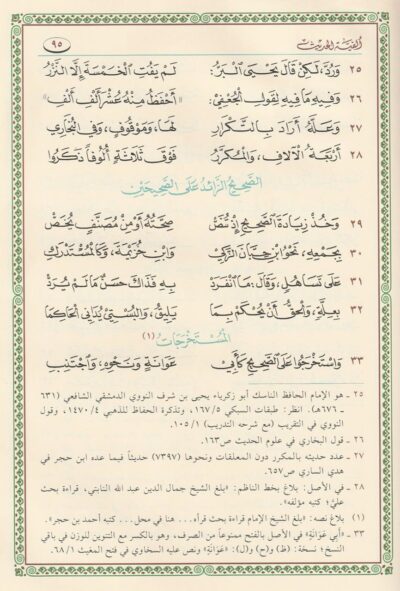 ألفية الحديث
٩٥
٢٥ وَرُدَّ، لَكِنْ قَالَ يَحْيَى الْبَرُّ: لَمْ يَفُتِ الْخَمْسَةَ إِلَّا النَّزْرُ
٢٦ وَفِيهِ مَا فِيهِ لِقَوْلِ الْجُعْفِيْ: «أَحْفَظُ مِنْهُ عُشْرَ أَلْفِ أَلْفِ»
٢٧ وَعَلَّهُ أَرَادَ بِالتَّكْرَارِ لَهَا، وَمَوْقُوفٍ، وَفِي الْبُخَارِي
٢٨ أَرْبَعَةُ الْآلَافِ، وَالْمُكَرَّرُ فَوْقَ ثَلَاثَةٍ أُلُوفًا ذَكَرُوا
الصَّحِيحُ الزَّائِدُ عَلَى الصَّحِيحَيْنِ
٢٩ وَخُذْ زِيَادَةَ الصَّحِيحِ إِذْ تُنَصّْ صِحَّتُهُ أَوْ مِنْ مُصَنَّفٍ يُخَصّْ
٣٠ بِجَمْعِهِ، نَحْوُ ابْنِ حِبَّانَ الزَّكِيْ وَابْنِ خُزَيْمَةَ، وَكَالْمُسْتَدْرَكِ
٣١ عَلَى تَسَاهُلٍ، وَقَالَ: مَا انْفَرَدْ بِهِ فَذَاكَ حَسَنٌ مَا لَمْ يُرَدّْ
٣٢ بِعِلَّةٍ، وَالْحَقُّ أَنْ يُحْكَمْ بِمَا يَلِيقُ، وَالْبُسْتِيْ يُدَانِي الْحَاكِمَا
الْمُسْتَخْرَجَاتُ (١)
٣٣ وَاسْتَخْرَجُوا عَلَى الصَّحِيحِ كَأَبِي عَوَانَةٍ وَنَحْوِهِ، وَاجْتَنِبِ
٢٥ - هو الإمام الحافظ الناسك أبو زكرياء يحيى بن شرف النووي الدمشقي الشافعي (٦٣١
- ٦٧٦هـ). انظر: طبقات السبكي ١٦٧/٥، وتذكرة الحفاظ للذهبي ١٤٧٠/٤، وقول
النووي في التقريب (مع شرحه التدريب) ١٠٥/١.
٢٦ - قول البخاري في علوم الحديث ص١٦٣.
٢٧ - عدد حديثه بالمكرر دون المعلقات ونحوها (٧٣٩٧) حديثاً فيما عده ابن حجر في
هدي الساري ص٦٥٧.
٢٨ - في الأصل: بلاغ بخط الناظم: «بلغ الشيخ جمال الدين عبد الله النابتي، قراءة بحث
عليّ؛ كتبه مؤلفه».
(١) بلاغ نصه: «بلغ الشيخ الإمام قراءة بحث قرأه... هنا في محل... كتبه أحمد بن حجر».
٣٣ - «أبي عَوَانَةَ» في الأصل بالفتح ممنوعاً من الصرف، وهو بالكسر مع التنوين للوزن في باقي
النسخ؛ نسخة: (ظ) و(ح) و(ل): «عَوَانَةٍ» ونص عليه السخاوي في فتح المغيث ٦٨/١.